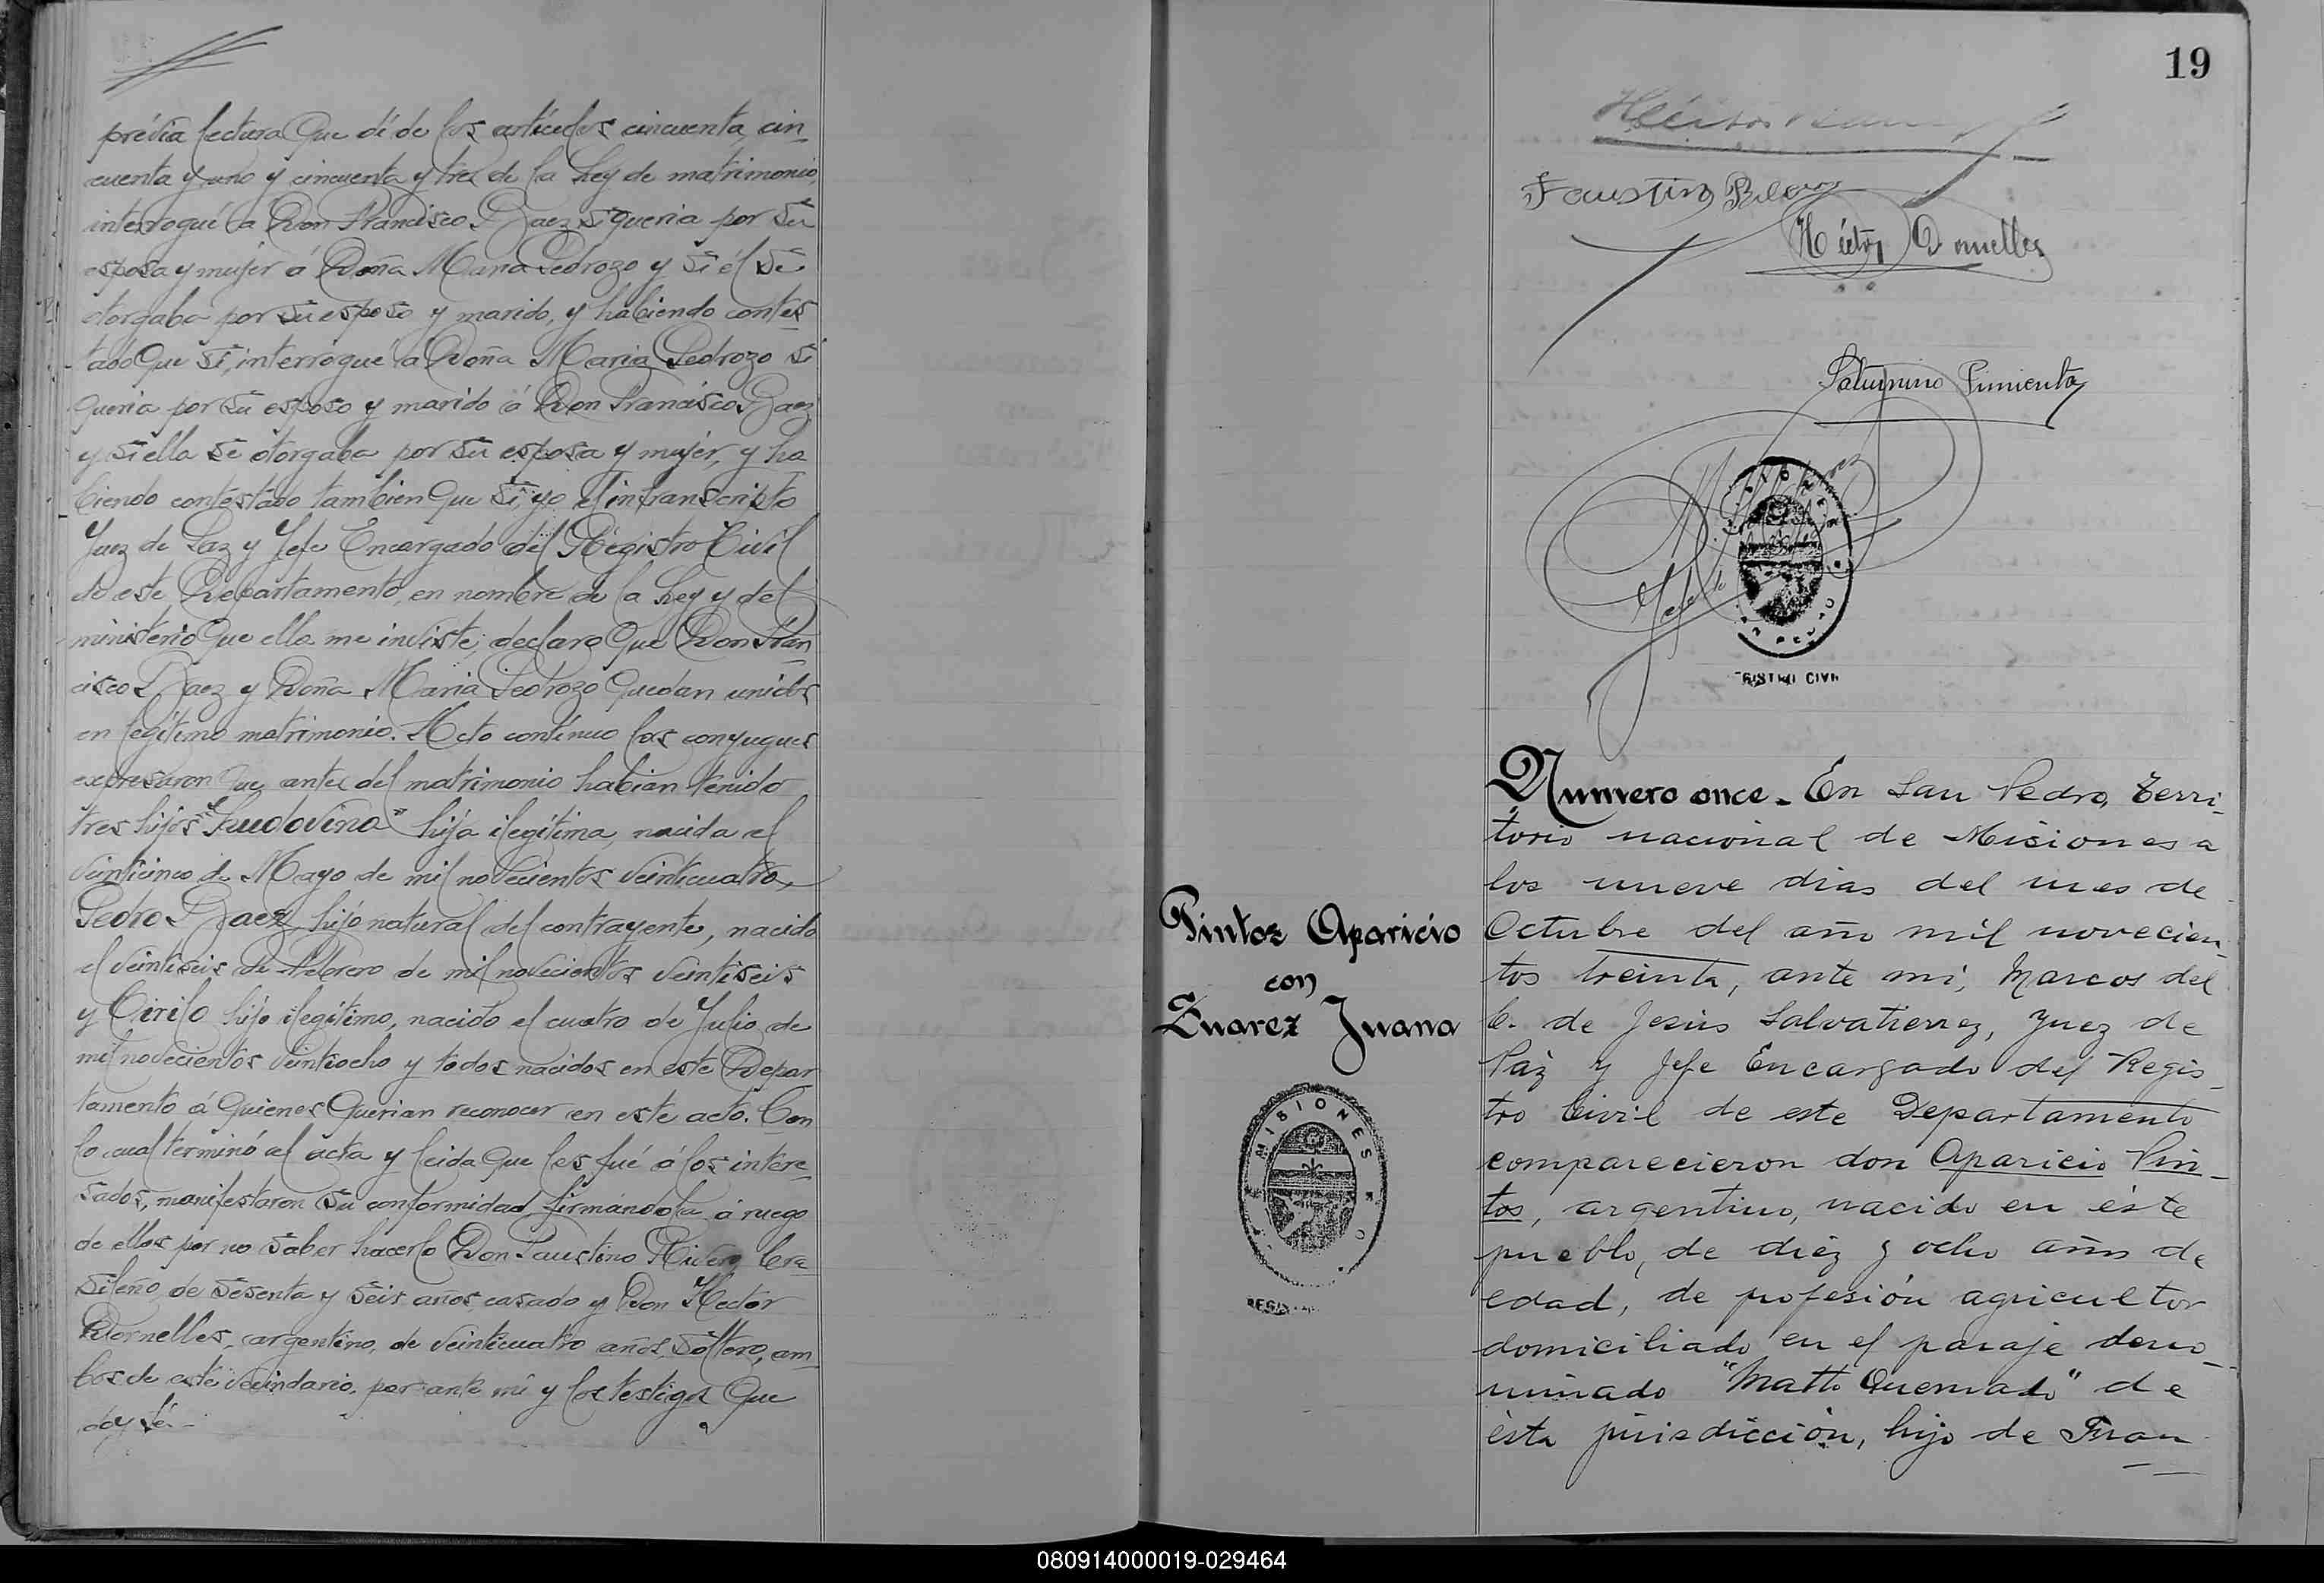 prévia lectura que dí de los artículos cincuenta, cin_
cuenta y uno y cincuenta y tres de la Ley de matrimonio,
interrogué á Don Francisco Baez si queria por su
esposa y mujer á Doña Maria Pedrozo y si él se
otorgaba por su esposo y marido, y habiendo contes_
tado que si, interrogué á Doña Maria Pedrozo si
queria por su esposo y marido á Don Francisco Baez
y si ella se otorgaba por su esposa y mujer, y ha
biendo contestado tambien que si, yo el infranscripto
Juez de Paz y Jefe Encargado del Registro Civil
de este Departamento, en nombre de la Ley y del
ministerio que ella me inviste, declaro que Don Fran_
cisco Baez y Doña Maria Pedrozo quedan unidos
en legítimo matrimonio. Acto contínuo los conyugues
expresaron que antes del matrimonio habian tenido
tres hijos "Ludovina" hija ilegítima, nacida el
veinticinco de Mayo de mil novecientos veinticuatro,
Pedro Baez, hijo natural del contrayente, nacido
el veintiseis de Febrero de mil novecientos veintiseis
y Cirilo hijo ilegítimo, nacido el cuatro de Julio de
mil novecientos veintiocho y todos nacidos en este Depar
tamento á quienes querian reconocer en este acto. Con
lo cual terminó el acta y leida que les fué á los intere_
sados, manifestaron su conformidad, firmándola á ruego
de ellos por no saber hacerlo Don Faustino Rivero, bra_
sileño, de sesenta y seis años, casado y Don Hector
Dornelles, argentino, de veinticuatro años, soltero, am_
bos de este vecindario, por ante mí y los testigos que
doy fé.-
19
Faustino
Héctor Dornelles
Saturnino Pimienta
Jefe de
REGISTRO CIVIL
Pintos Aparicio
con
Zuarez Juana
MISIONES
REGIS
Numero once. En San Pedro, Terri_
torio nacional de Misiones a
los nueve dias del mes de
Octubre del año mil novecien_
tos treinta, ante mi, Marcos del
C. de Jesús Salvatierrez, Juez de
Páz y Jefe Encargado del Regis_
tro Civil de este Departamento
comparecieron don Aparicio Pin_
tos, argentino, nacido en éste
pueblo, de diéz y ocho años de
edad, de profesión agricultor
domiciliado en el paraje deno_
minado "Matto Quemado" de
ésta jurisdicción, hijo de Fran_
080914000019-029464